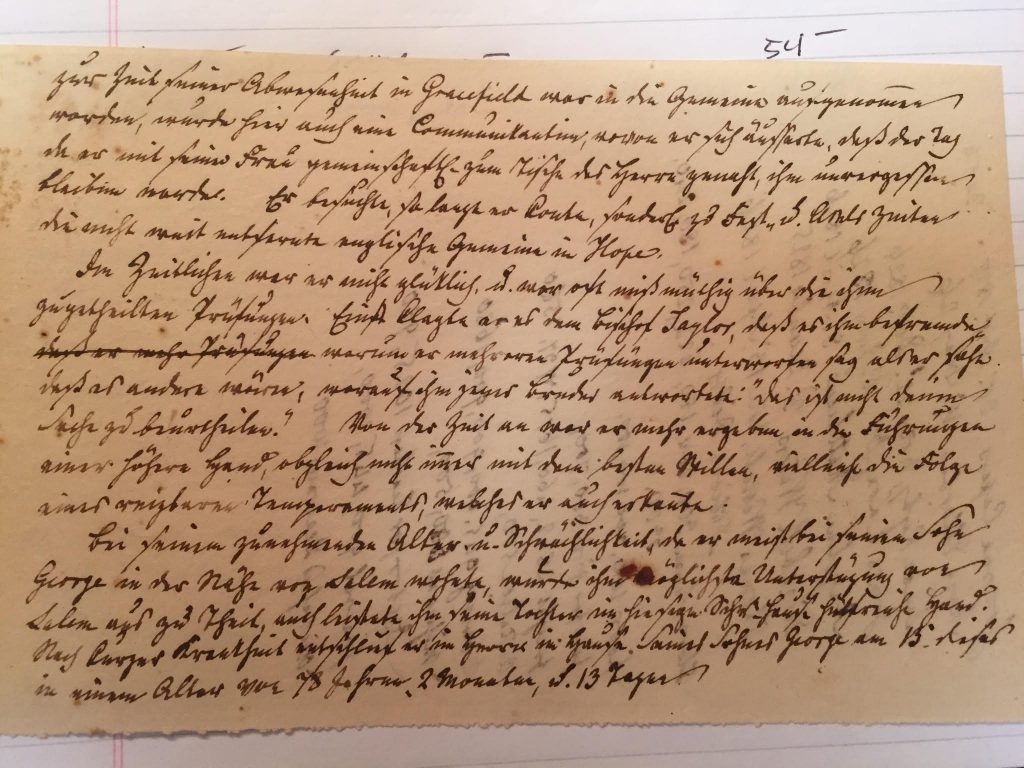 54
zur Zeit seiner Abwesenheit in Gracefield war in die Gemeine aufgenommen
worden, wurde hier auch eine Communikantin, wovon er sich äusserte, daß der Tag
da er mit seiner Frau gemeinschaftl. zum Tische des Herrn genaht, ihm unvergessen
bleiben werde. Er besuchte, so lange er konte, sonderl. zu Fest- u. Abdls Zeiten
die nicht weit entfernte englische Gemeine in Hope.
Im Zeitlichen war er nicht glüklich, u. war oft mißmüthig über die ihm
zugetheilten Prüfungen. Einst klagte er es dem Bischof, daß es ihm befremde
daß er mehr Prüfungen warum er mehreren Prüfungen unterworfen sey als er sähe
daß es andere wären, worauf ihm jener Bruder antwortete: "Das ist nicht deine
Sache zu beurtheilen." Von der Zeit an war er mehr ergeben in die Führungen
einer höhern Hand, obgleich nicht immer mit dem besten Willen, vielleicht die Folge
eines reizbaren Temperaments, welches er auch erkante.
Bei seinem zunehmenden Alter u. Schwächlichkeit, da er meist bei seinem Sohn
George in der Nähe von Salem wohnte, wurde ihm möglichste Unterstüzung von
Salem aus zu Theil, auch leistete ihm seine Tochter im hiesigen Schw. Hause hülfreiche Hand.
Nach kurzer Krankheit entschlief er im Hause seines Sohnes George am 15. dieses
in einem Alter von 78 Jahren, 2 Monaten, u. 13 Tagen